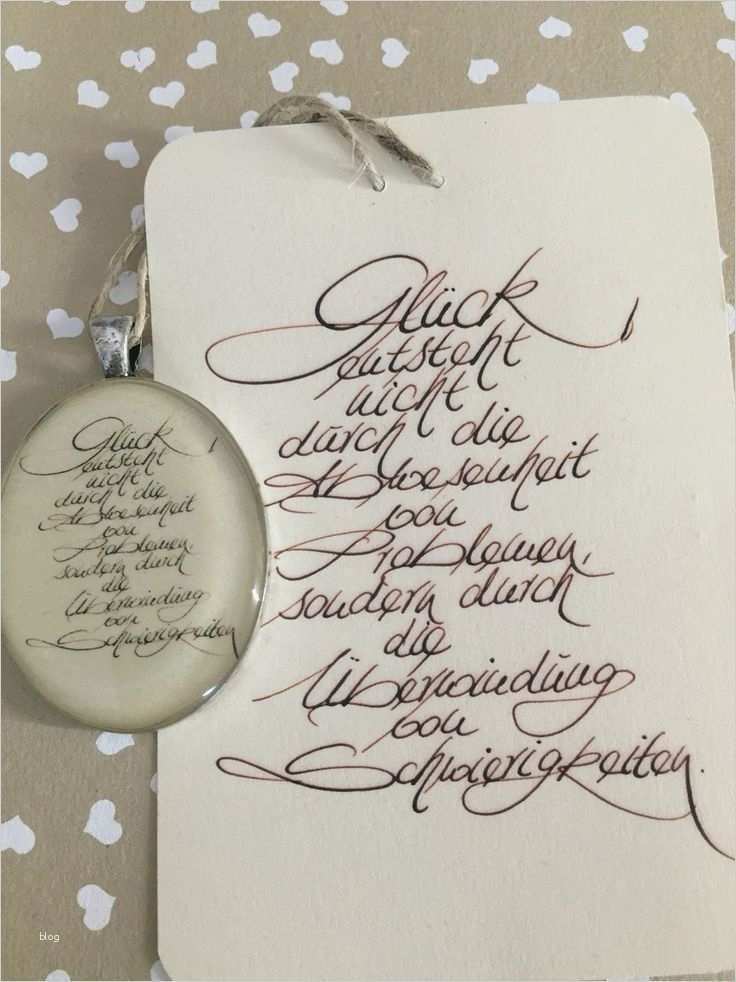 Glück
entsteht
nicht
durch die
Abwesenheit
von
Problemen,
sondern durch
die
Überwindung
von
Schwierigkeiten.
Glück
entsteht
nicht
durch die
Abwesenheit
von
Problemen,
sondern durch
die
Überwindung
von
Schwierigkeiten
blog